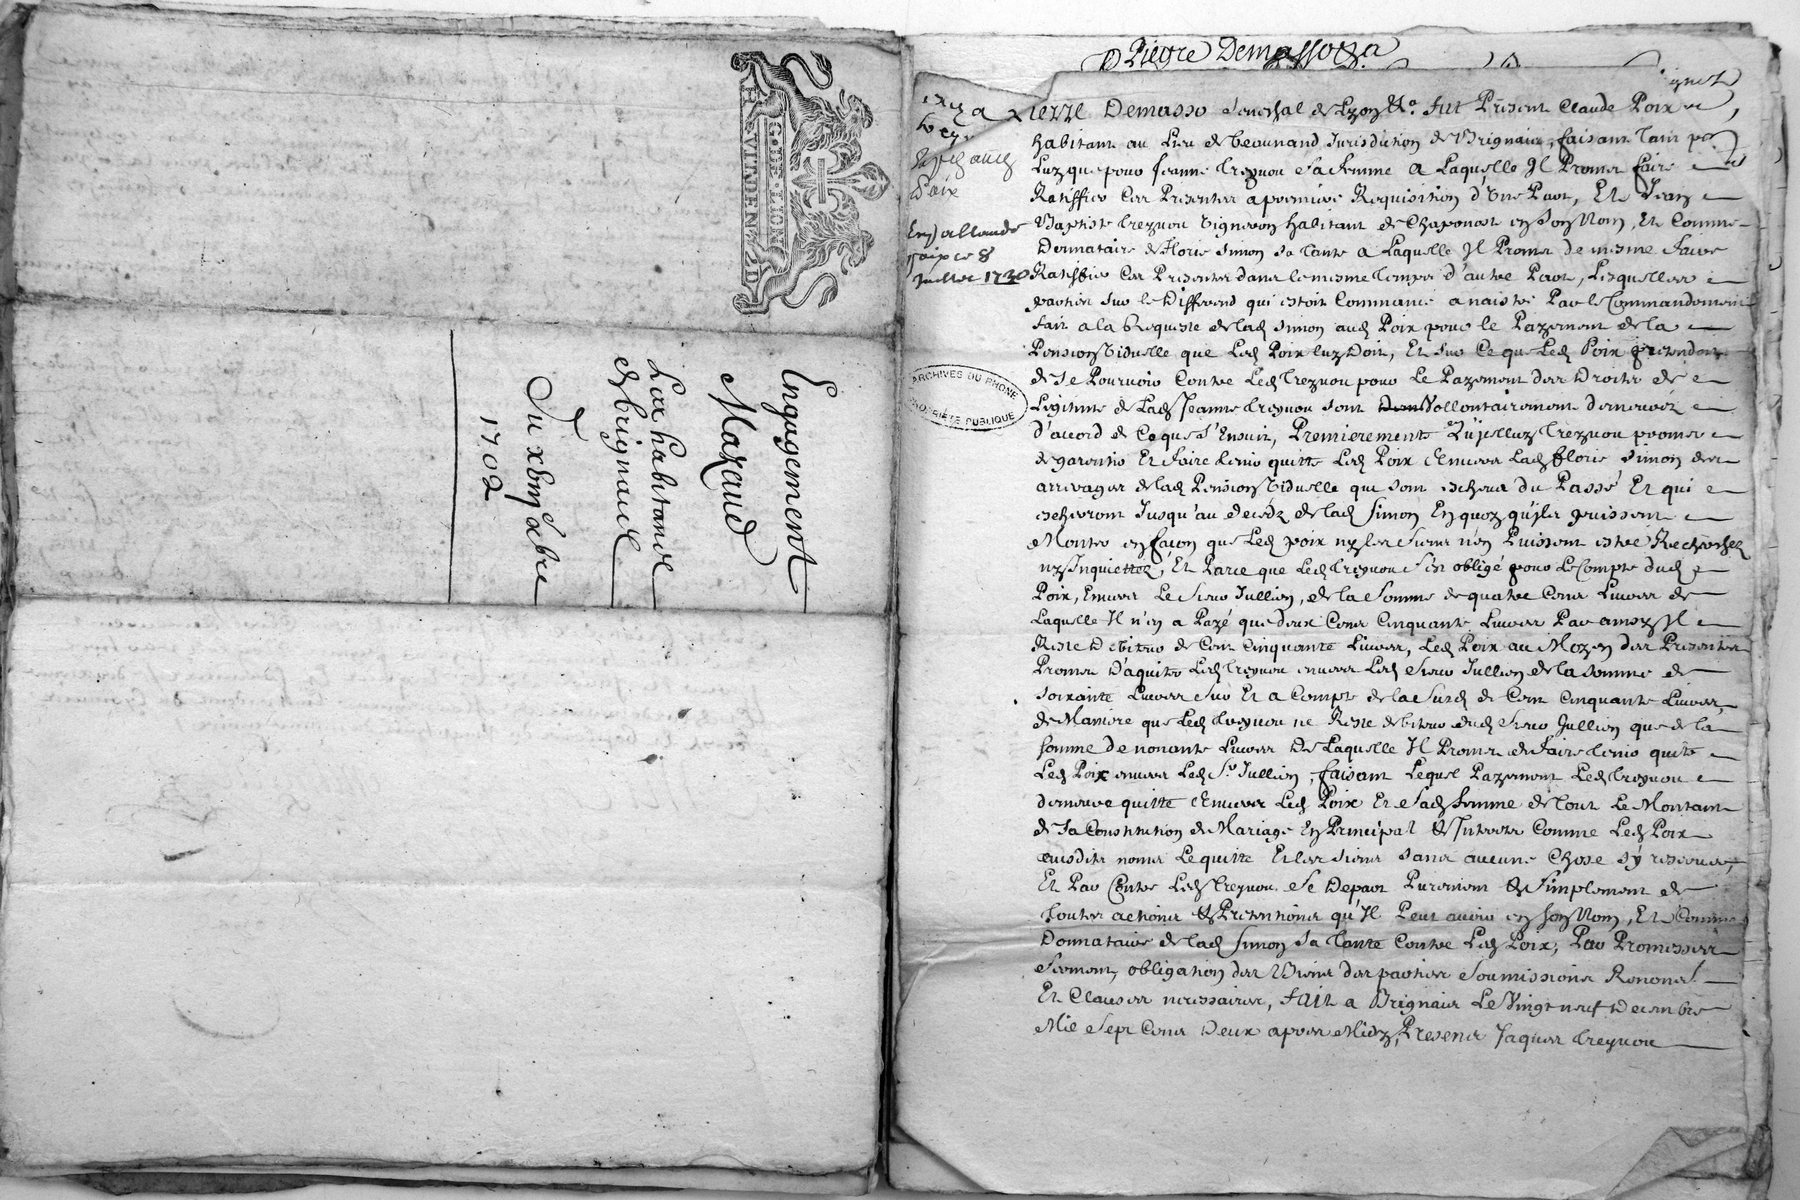 GNE. LION
EVLT DEN 2.D
Engagement
Mazaud
Les habitans
de brignais
Du xbre
1702
Pierre Demasso
ierre Demasso seneschal de Lyon &a. fut Present Claude Poix
habitant au Lieu de beaunand Jurisdiction de Brignais, faisant tant po
Luy que pour Jeanne treynou sa femme a Laquelle Il Promet faire
Ratiffier Ces Presentes a premiere Requisition d'Une Part, Et Jean
Baptiste treynou Vigneron habitant de Chaponost en son Nom, Et Comme
Donnataire de florie Simon sa tante a Laquelle Il Promet de mesme faire
Ratiffier Ces Presentes dans le mesme temps d'autre Part, Lesquelles
parties sur le Different qui estoit Commancé a naistre Par le Commandement
fait a la Requeste de lad Simon aud Poix pour le Payement de la
Pension Viduelle que Led Poix luy Doit, Et sur Ce que Led Poix pretendoit
de se Pourvoir Contre Led treynou pour Le Payement des Droits de
Legitime de Lad Jeanne treynou sont Vollontairement demeurés
d'accord de Ce que s'Ensuit, Premierement Qu'icelluy treynou promet
de garentir Et faire tenir quitte Led Poix Envers Lad florie Simon des
arrerages de lad Pension Viduelle qui sont escheus du Passé Et qui
escherront Jusqu'au deceds de lad Simon En quoy qu'ils puissent
Monter en façon que Led poix ny les siens n'en Puissent estre Recherchez
ny Inquiettez, Et Parce que Led treynou s'est obligé pour Le Compte dud
Poix, Envers Le Sieur Jullien, de la Somme de quatre Cens Livres de
Laquelle Il n'en a Payé que deux Cens Cinquante Livres Par ainsy Il
Reste Debiteur de Cent Cinquante Livres, Led Poix au Moyen des Presentes
Promet D'aquiter Led treynou envers Led Sieur Jullien de la somme de
soixante Livres sur Et a Compte de la Susd de Cent Cinquante Livres,
de Maniere que Led treynou ne Reste debiteur dud Sieur Jullien que de la
somme de nonante Livres De Laquelle Il Promet de faire tenir quitte
Led Poix envers Led Sr. Jullien, faisant Lequel Payement Led treynou
demeure quitte Envers Led Poix Et sad femme de tout Le Montant
de sa Constitution de Mariage En Principal & Interets Comme Led Poix
ausdits noms Le quitte Et les siens sans aucune Chose s'y reserver,
Et Par Contre Led treynou se Depart Purement & Simplement de
toutes actions & Pretentions qu'Il Peut avoir en son Nom, Et Comme
Donnataire de lad Simon sa tante Contre Led Poix, Par Promesses
serment, obligation des Biens des parties Soumissions Renons.
Et Clauses necessaires, fait a Brignais Le Vingt neuf Decembre
Mil Sept Cens Deux apres Midy, Presens Jaques treynou
Exp aud
Poix
Exp a Claude
Poix ce 8
Juillet 1720
ARCHIVES DU RHONE
PROPRIÉTÉ PUBLIQUE